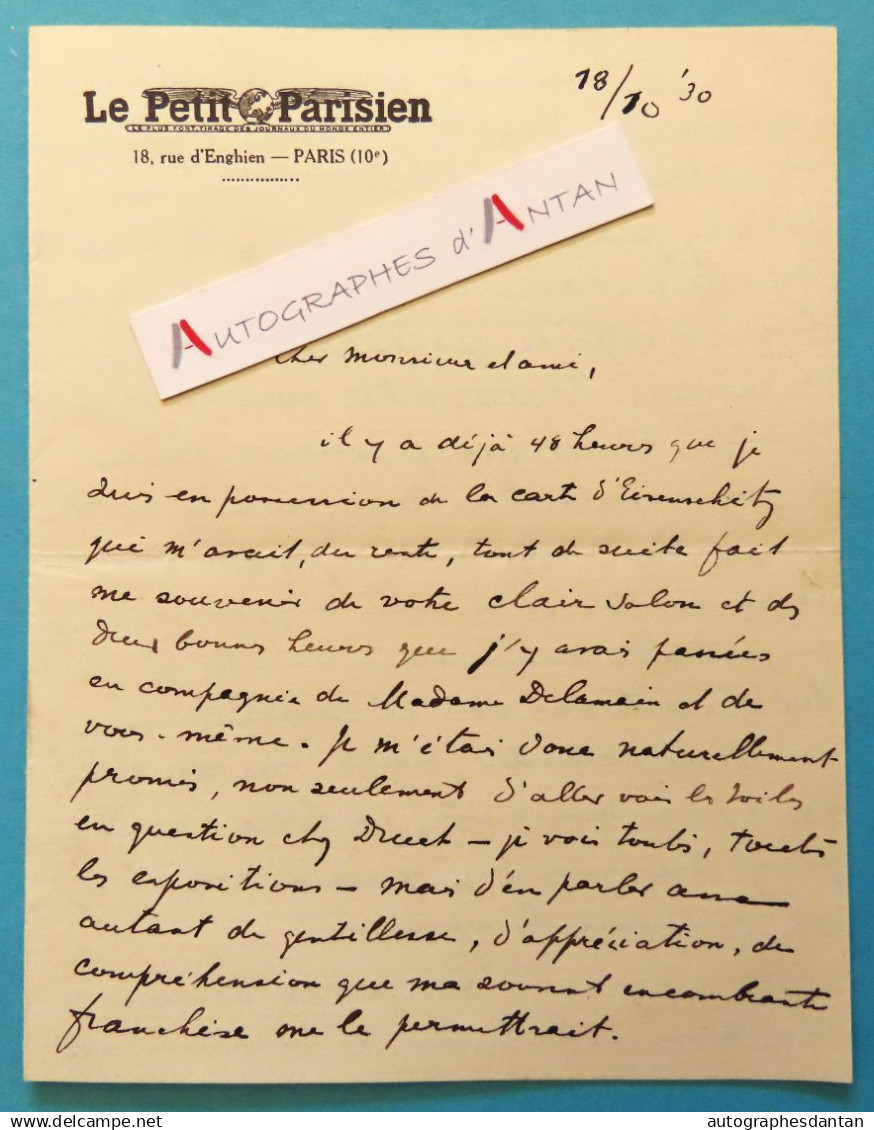 Le Petit Parisien
LE PLUS FORT TIRAGE DES JOURNAUX DU MONDE ENTIER
18, rue d'Enghien — PARIS (10e)
18/10 '30
AUTOGRAPHES d'ANTAN
Cher Monsieur et ami,
il y a déjà 48 heures que je
suis en possession de la carte d'Eisenschitz
qui m'avait, du reste, tout de suite fait
me souvenir de votre clair salon et des
deux bonnes heures que j'y avais passées
en compagnie de Madame Delamain et de
vous-même. Je m'étais donc naturellement
promis, non seulement d'aller voir les toiles
en question chez Druet — je vois toutes, toutes
les expositions — mais d'en parler avec
autant de gentillesse, d'appréciation, de
compréhension que ma souvent encombrante
franchise me le permettrait.
autographesdantan